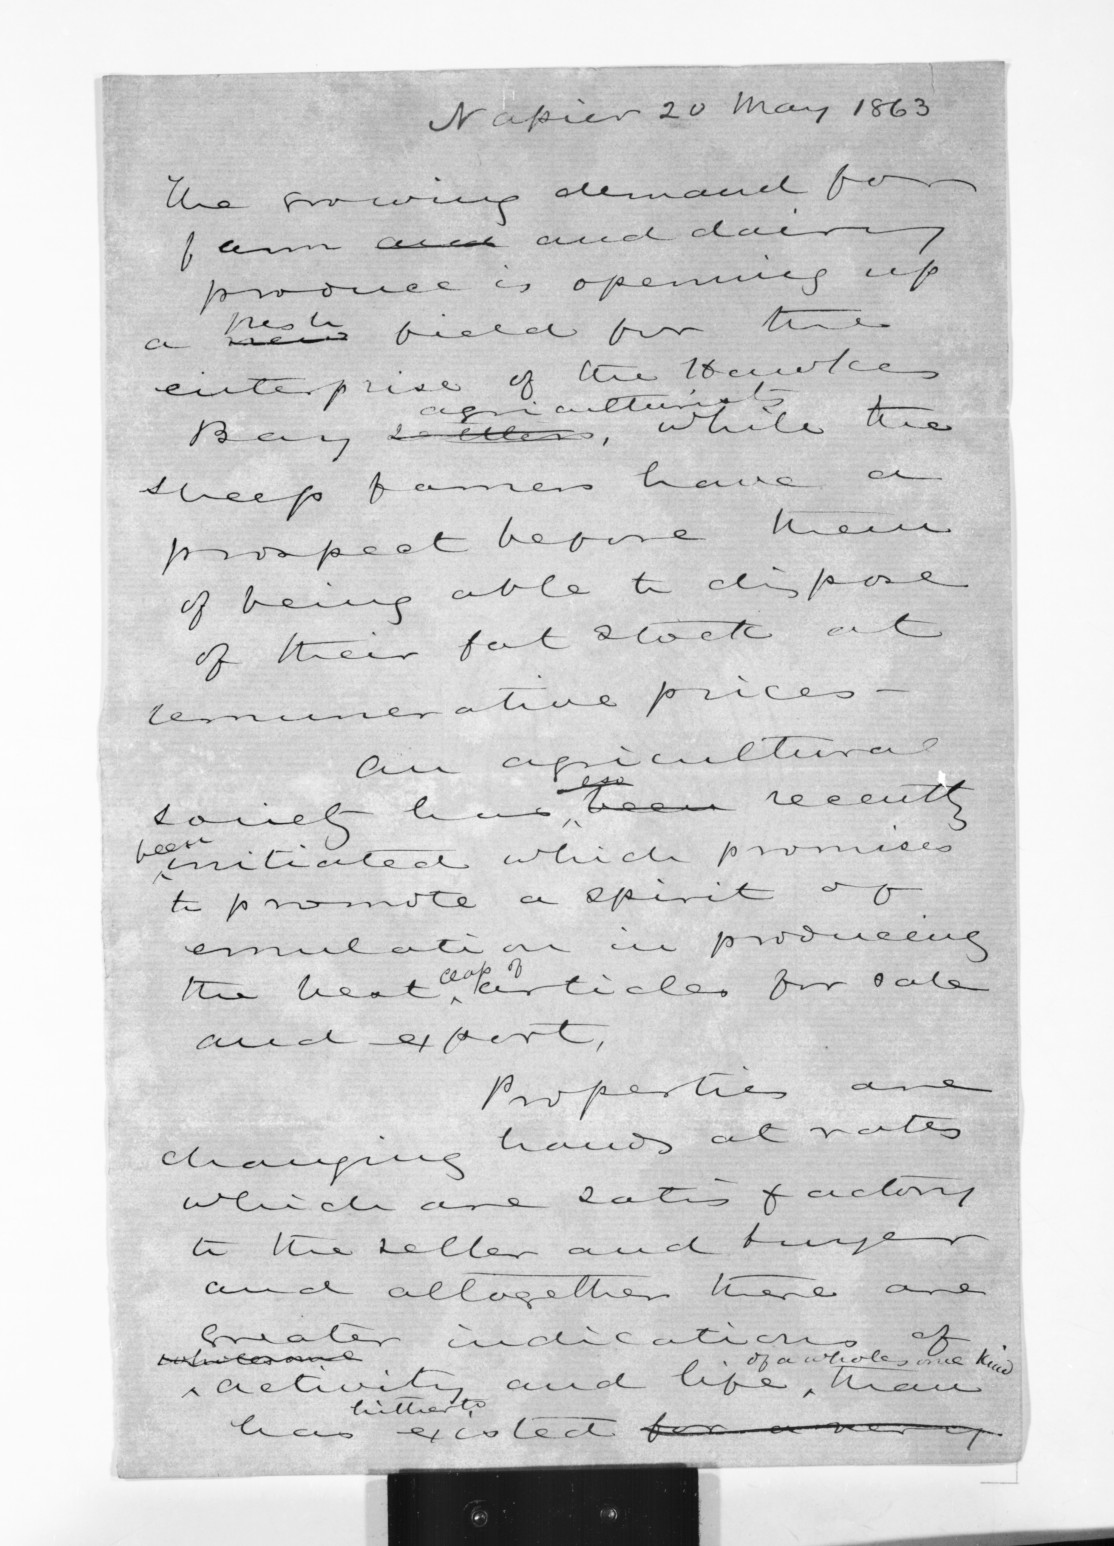 Napier 20 May 1863
The growing demand for
farm and and dairy
produce is opening up
fresh
a new field for the
enterprise of the Hawkes
agriculturists
Bay settlers, while the
sheep farmers have a
prospect before them
of being able to dispose
of their fat stock at
remunerative prices —
An agricultural
also
society has been recently
been
initiated which promises
to promote a spirit of
emulation in producing
class of
the best articles for sale
and export,
Properties are
changing hands at rates
which are satisfactory
to the seller and buyer
and altogether there are
greater indications of
wholesome of a wholesome kind
activity and life, than
hitherto
has existed for a very